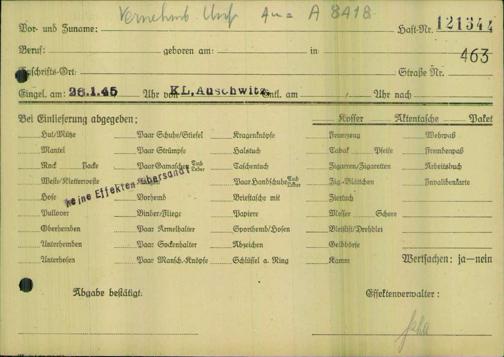 Vor- und Zuname: A 8418 Haft-Nr. 121344
Beruf: geboren am: in 463
Anschrifts-Ort: Straße Nr.
Eingel. am: 26.1.45 Uhr von KL. Auschwitz Entl. am Uhr nach
Bei Einlieferung abgegeben: Koffer Aktentasche Paket
Hut/Mütze Paar Schuhe/Stiefel Kragenknöpfe Feuerzeug Wehrpaß
Mantel Paar Strümpfe Halstuch Tabak Pfeife Fremdenpaß
Rock Jacke Paar Gamaschen Tuch Leder Taschentuch Zigarren/Zigaretten Arbeitsbuch
Weste/Kletterweste Paar Handschuhe Tuch Leder Zig-Blättchen Invalidenkarte
keine Effekten übersandt
Hose Vorhemd Brieftasche mit
Pullover Binder/Fliege Papiere Messer Schere
Oberhemden Paar Ärmelhalter Sporthemd/Hosen Bleistift/Drehblei
Unterhemden Paar Sockenhalter Abzeichen Geldbörse
Unterhosen Paar Mansch.-Knöpfe Schlüssel a. Ring Kamm Wertsachen: ja—nein
Abgabe bestätigt: Effektenverwalter: